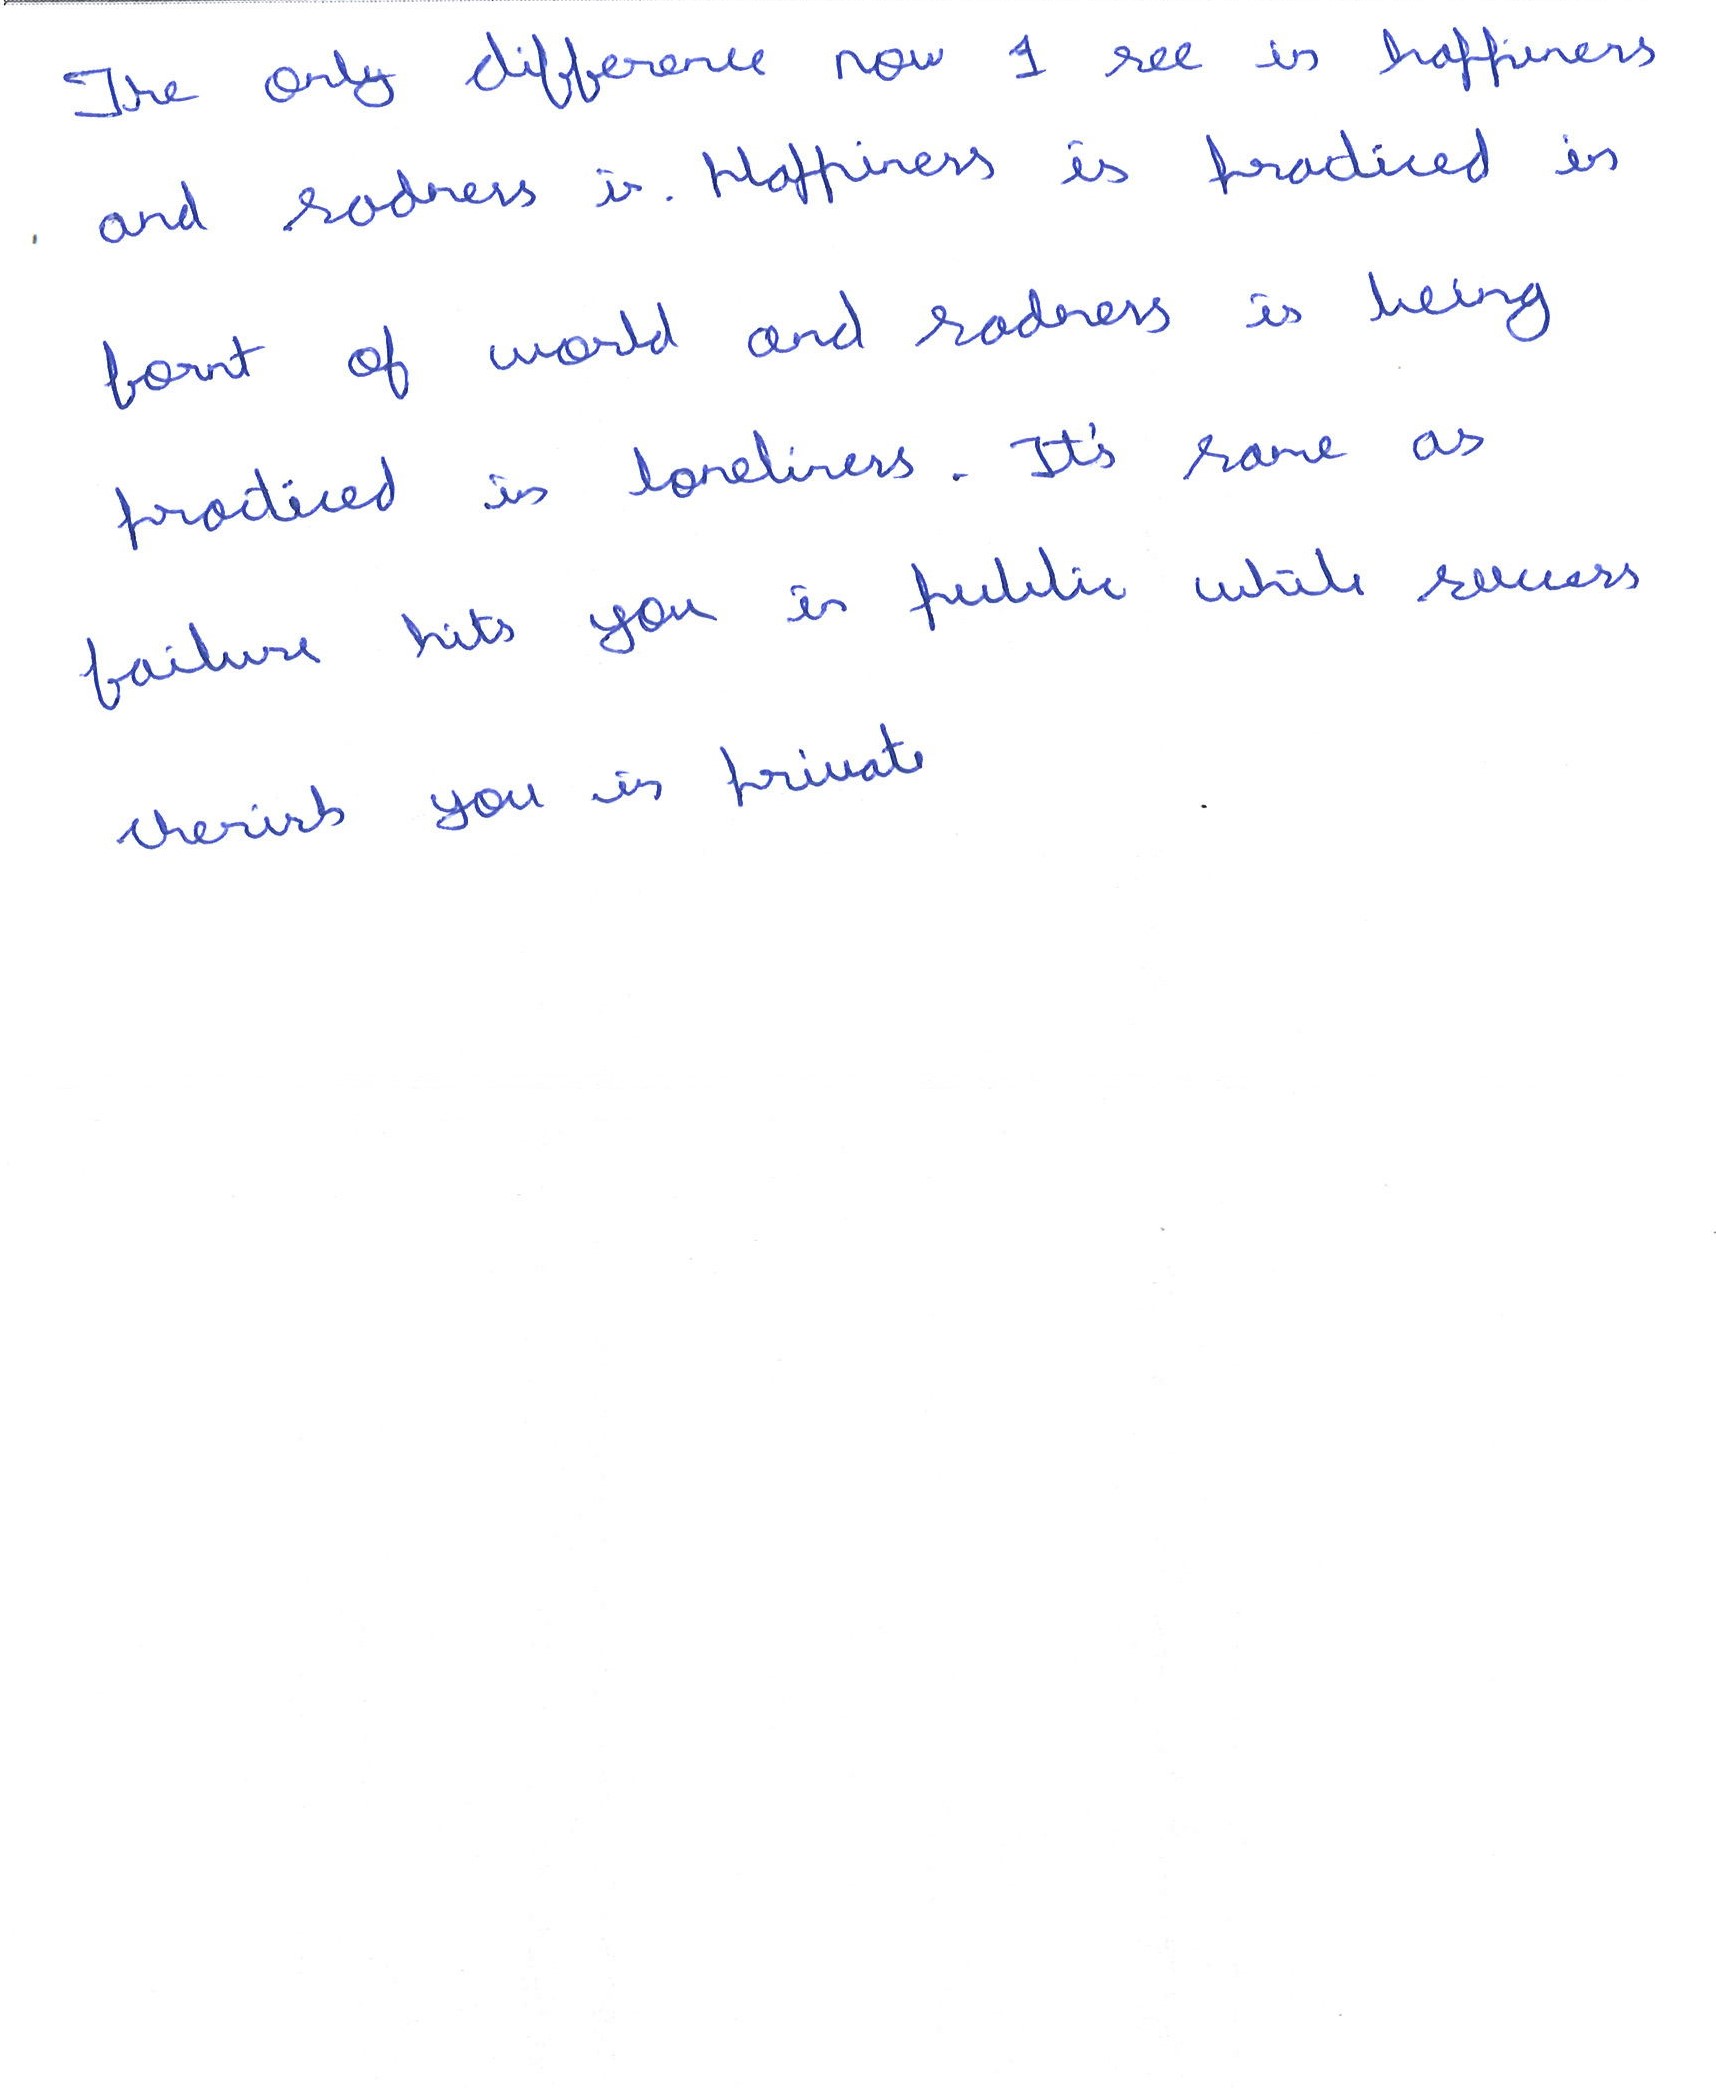 The only difference now I see in happiness
and sadness is. Happiness is practiced in
fornt of world and sadness is being
practiced in loneliness. It's same as
failure hits you in public while success
cherish you in private